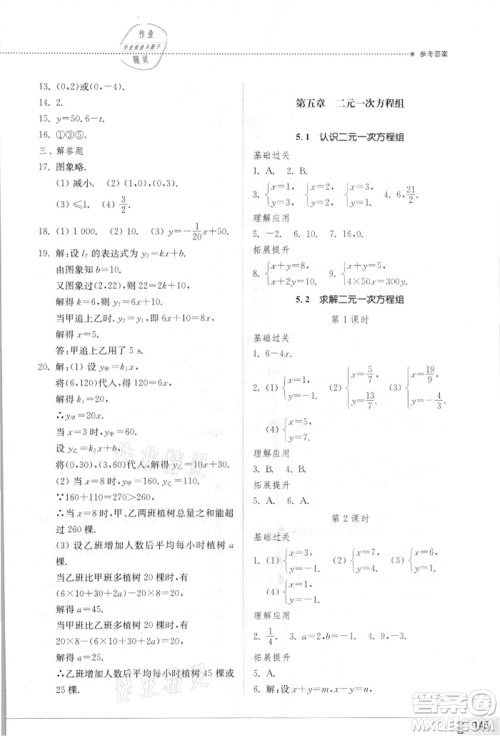 作业
作业检查小助手
精灵
参考答案
13. (0,2)或(0,-4).
14. 2.
15. y=50,6-t.
16. ①③⑤.
三、解答题
17. 图象略.
(1) 减小. (2) (2,0),(0,3).
(3) ≤1. (4) 3/2
18. (1) 1 000. (2) 10. (3) y=-1/20x+50.
19. 解:设 l₂ 的表达式为 y₂=kx+b,
由图象知 b=10.
又图象过(2,22),故 22=2k+10.
解得 k=6,则 y₂=6x+10.
当甲追上乙时,y₁=y₂,即 8x=6x+10.
解得 x=5.
答:甲追上乙用了 5 s.
20. 解:(1) 设 y甲=k₁x,
将(6,120)代入,得 k₁=20.
∴y甲=20x.
当 x=3 时,y甲=60.
设 y乙=k₂x+b,
将(0,30),(3,60)代入,得 y乙=10x+30.
(2) 当 x=8 时,y甲=160,y乙=110.
∵160+110=270>260,
∴当 x=8 时,甲、乙两班植树的总量能超过 260 棵.
(3) 设乙班增加人数后平均每小时植树 a 棵.
当乙班比甲班多植树 20 棵时,有
(6×10+30+2a)-20×8=20.
解得 a=45.
当甲班比乙班多植树 20 棵时,有
20×8-(6×10+30+2a)=20.
解得 a=25.
∴乙班增加人数后平均每小时植树 45 棵或 25 棵.
第五章 二元一次方程组
5.1 认识二元一次方程组
基础过关
1. A. 2. C.
3. {x=1, y=3, {x=2, y=2, {x=3, y=1. 4. 6, 21/2.
理解应用
5. -2. 6. 0. 7. 16.
拓展提升
8. {x+y=8, x+2y=10. 9. {x+y=5, 4×50x=150y.
5.2 求解二元一次方程组
第 1 课时
基础过关
1. 6-4x.
2. (1) {x=5, y=7. (2) {x=4, y=3. (3) {x=19/9, y=-4/3.
(4) {x=5, y=7.
理解应用
3. B. 4. A.
拓展提升
5. 1.
第 2 课时
基础过关
1. (1) {x=3, y=2. (2) {x=7, y=5. (3) {x=6, y=4.
理解应用
2. 1/4. 3. 0. 4. A. 5. D.
拓展提升
6. 解:设 x+y=m,x-y=n,